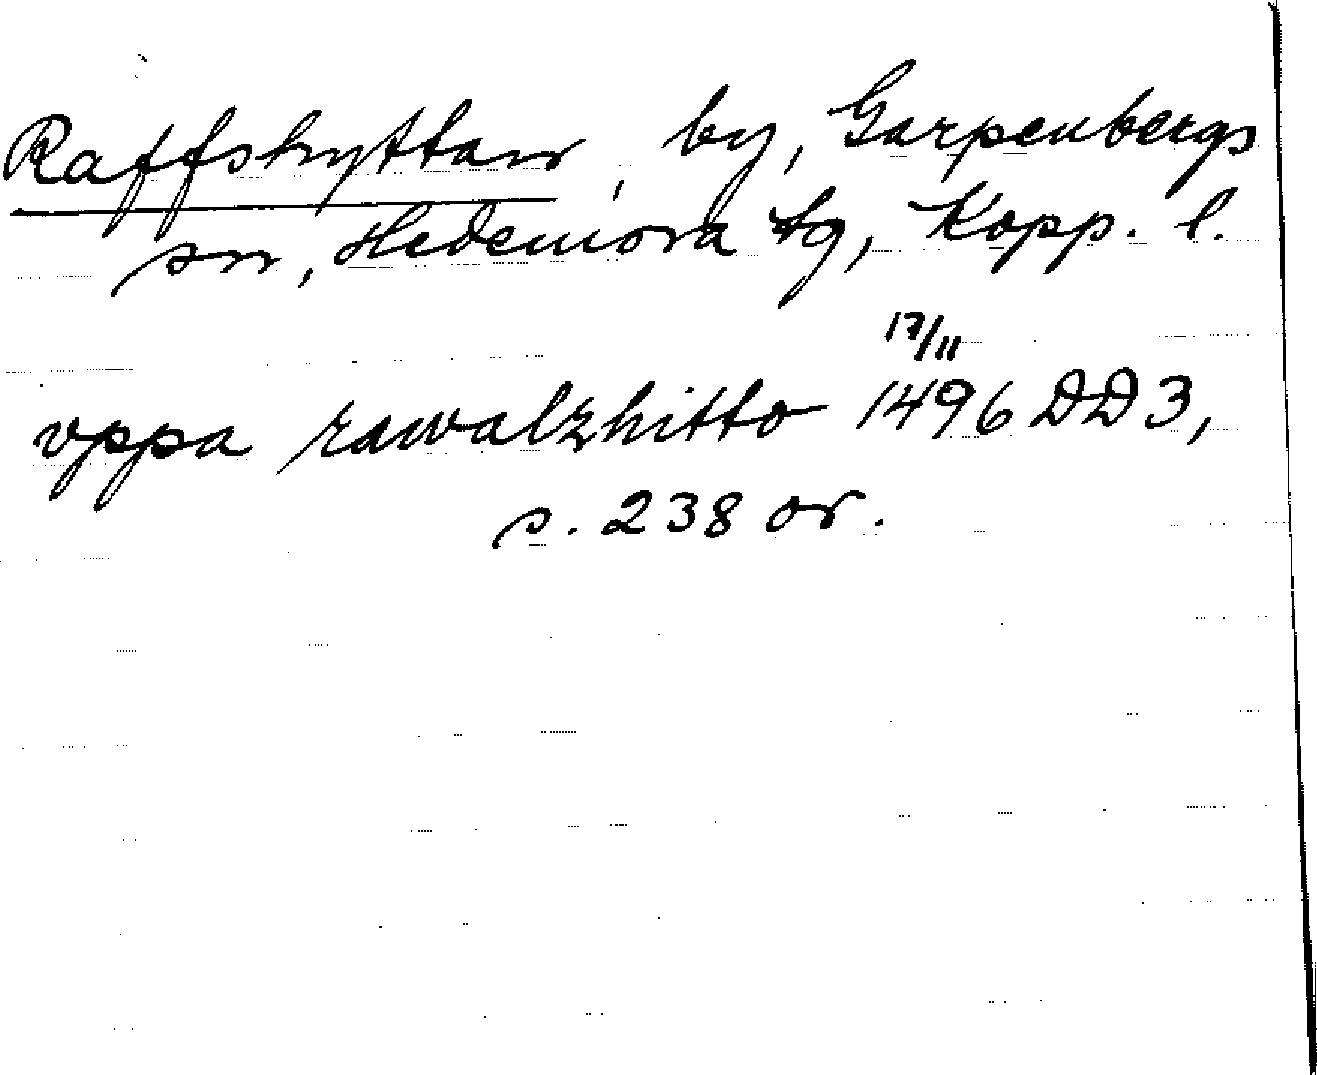 Raffshyttan, by, Garpenbergs
sn, Hedemora tg, Kopp. l.
17/11
vppa rawalzhitto 1496 DD 3,
s. 238 or.